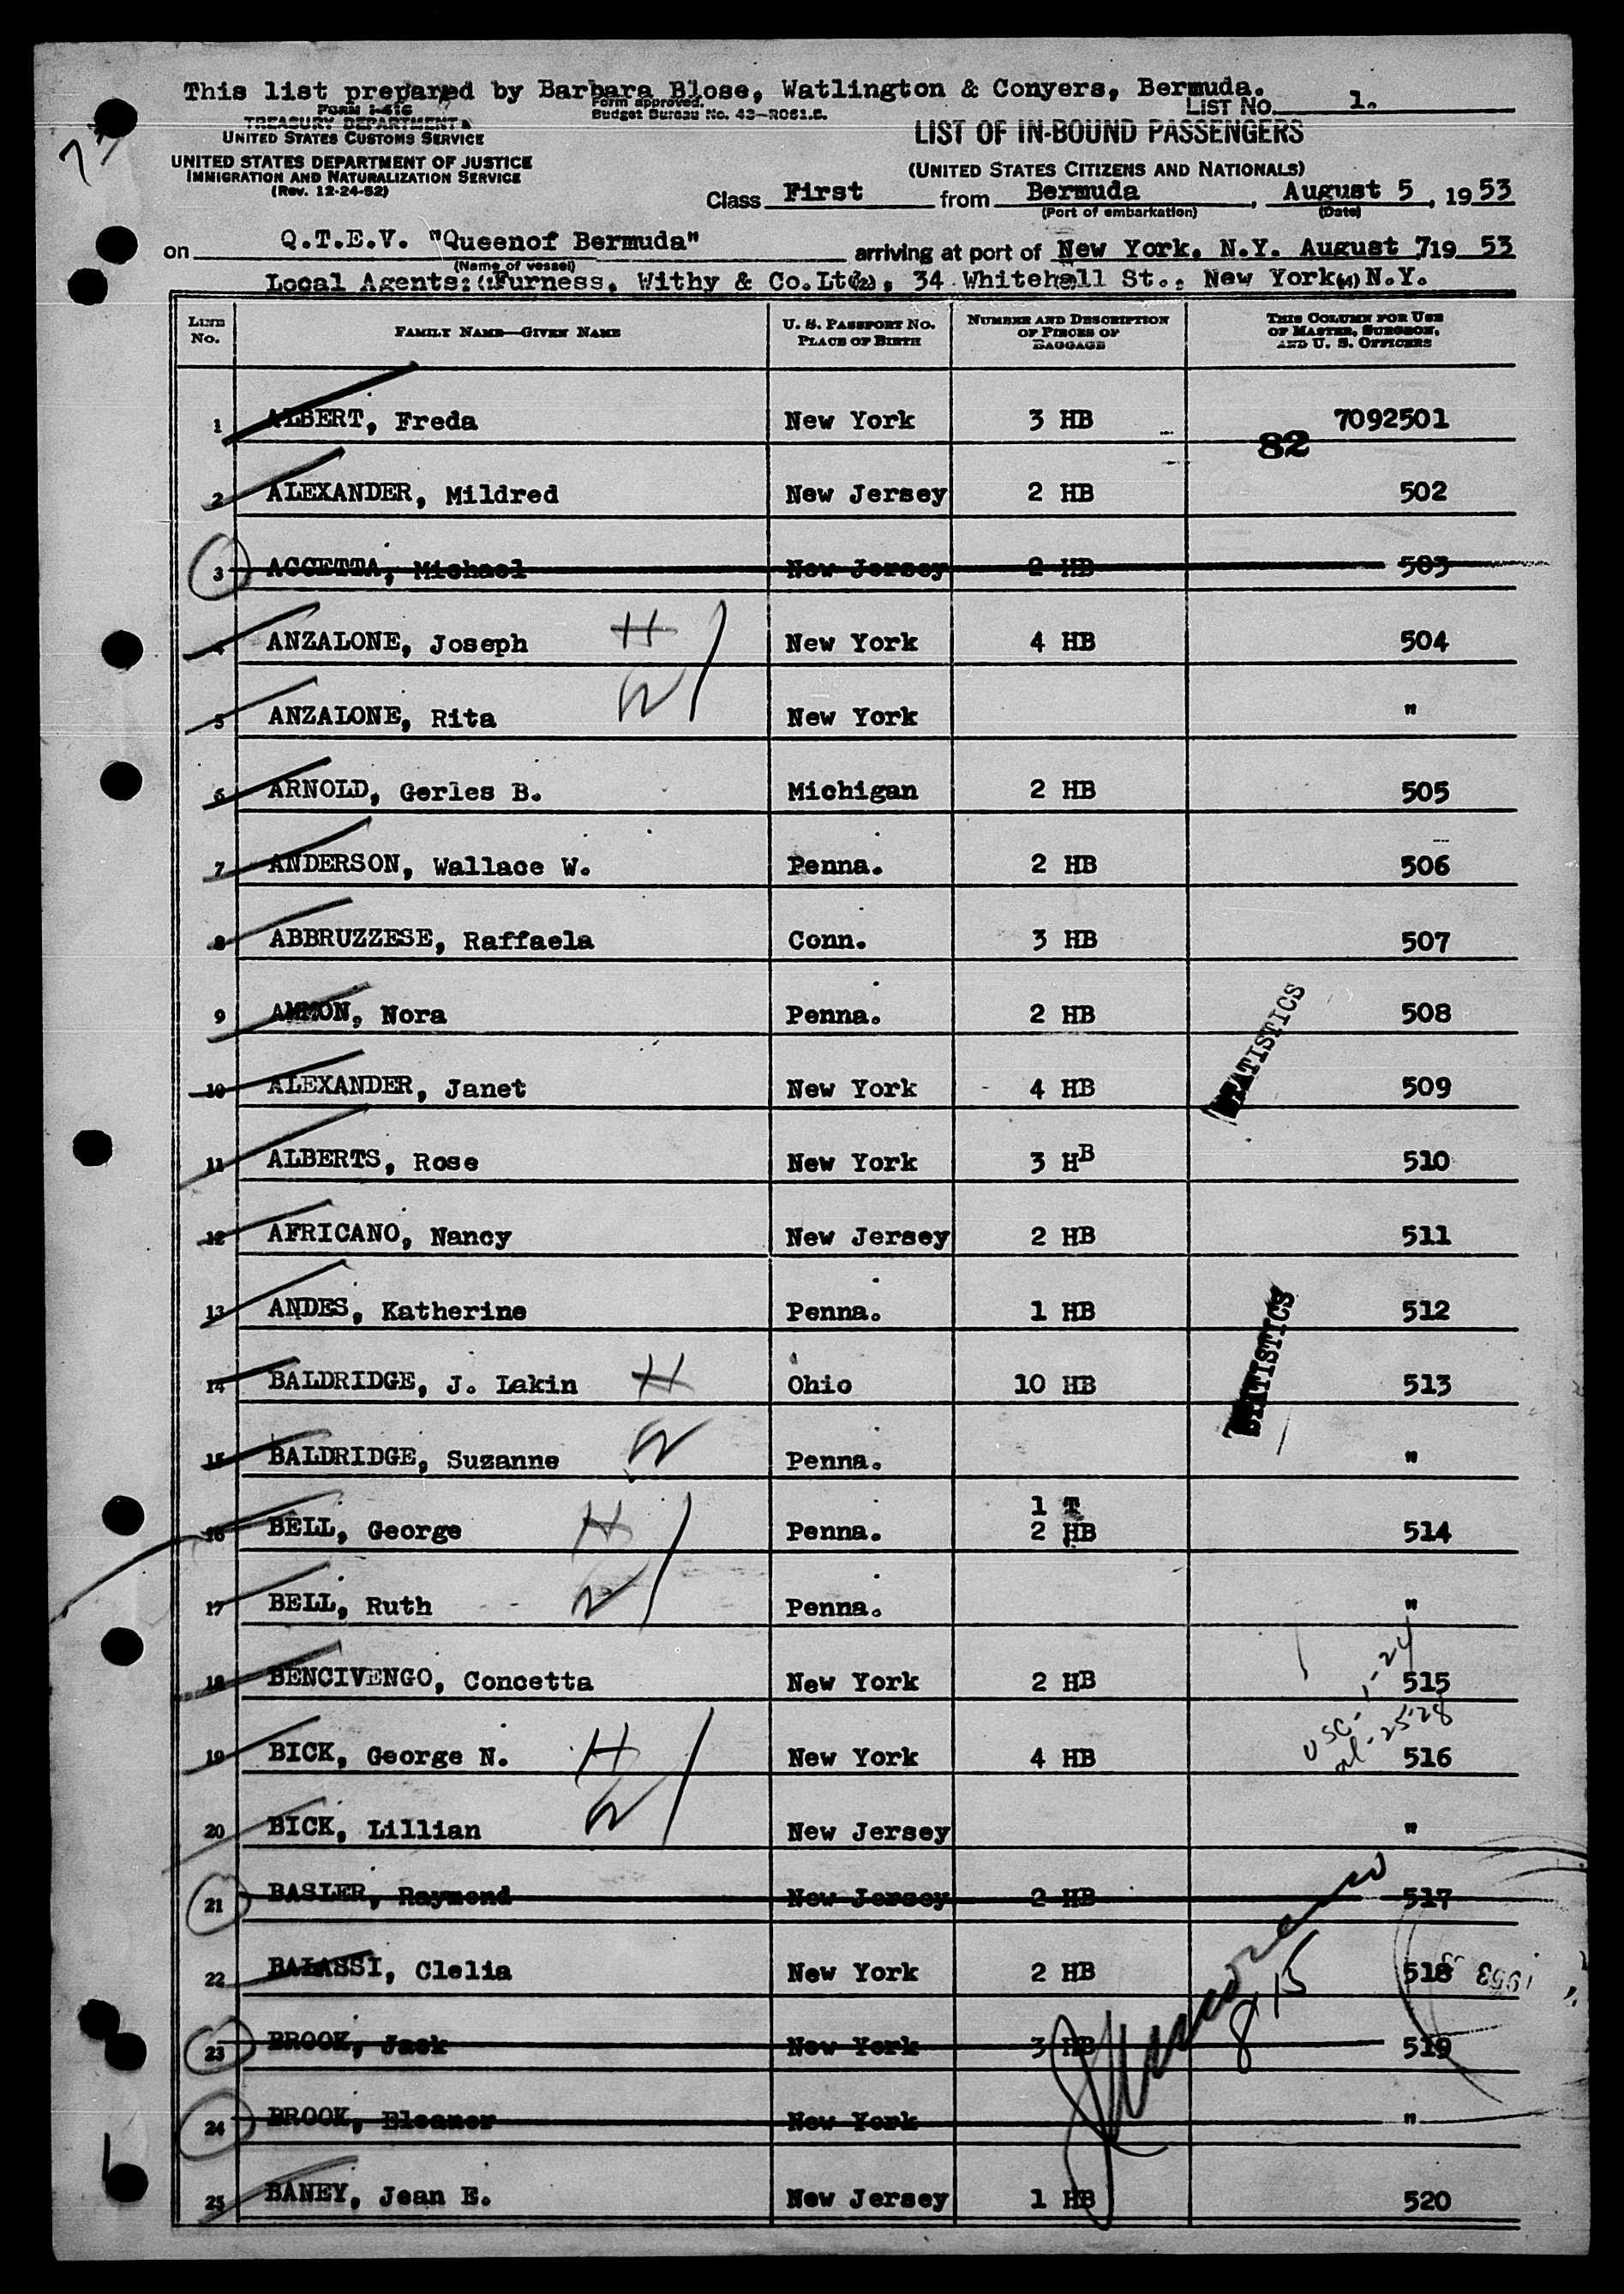 This list prepared by Barbara Blose, Watlington & Conyers, Bermuda.
FORM I-416
TREASURY DEPARTMENT
UNITED STATES CUSTOMS SERVICE
Form approved.
Budget Bureau No. 43-R061.5.
LIST NO. 1.
LIST OF IN-BOUND PASSENGERS
UNITED STATES DEPARTMENT OF JUSTICE
IMMIGRATION AND NATURALIZATION SERVICE
(Rev. 12-24-52)
(UNITED STATES CITIZENS AND NATIONALS)
Class First from Bermuda, August 5, 1953
(Port of embarkation) (Date)
on Q.T.E.V. "Queenof Bermuda" arriving at port of New York, N.Y. August 7, 19 53
(Name of vessel)
Local Agents: Furness, Withy & Co.Ltd., 34 Whitehall St., New York, N.Y.
LINE No. FAMILY NAME—GIVEN NAME U. S. PASSPORT NO. PLACE OF BIRTH NUMBER AND DESCRIPTION OF PIECES OF BAGGAGE THIS COLUMN FOR USE OF MASTER, SURGEON, AND U. S. OFFICERS
1 ALBERT, Freda New York 3 HB 7092501
82
2 ALEXANDER, Mildred New Jersey 2 HB 502
3 ACCETTA, Michael New Jersey 2 HB 503
4 ANZALONE, Joseph H New York 4 HB 504
5 ANZALONE, Rita W New York "
6 ARNOLD, Gerles B. Michigan 2 HB 505
7 ANDERSON, Wallace W. Penna. 2 HB 506
8 ABBRUZZESE, Raffaela Conn. 3 HB 507
9 AMMON, Nora Penna. 2 HB 508
STATISTICS
10 ALEXANDER, Janet New York 4 HB 509
11 ALBERTS, Rose New York 3 HB 510
12 AFRICANO, Nancy New Jersey 2 HB 511
13 ANDES, Katherine Penna. 1 HB 512
STATISTICS
14 BALDRIDGE, J. Lakin H Ohio 10 HB 513
15 BALDRIDGE, Suzanne W Penna. "
16 BELL, George H Penna. 1 T 2 HB 514
17 BELL, Ruth W Penna. "
18 BENCIVENGO, Concetta New York 2 HB 515
USC-1-24
al-25-28
19 BICK, George N. H New York 4 HB 516
20 BICK, Lillian W New Jersey "
21 BASLER, Raymond New Jersey 2 HB 517
22 BALASSI, Clelia New York 2 HB 518
1953
8/15
23 BROOK, Jack New York 3 HB 519
24 BROOK, Eleanor New York "
25 BANEY, Jean E. New Jersey 1 HB 520